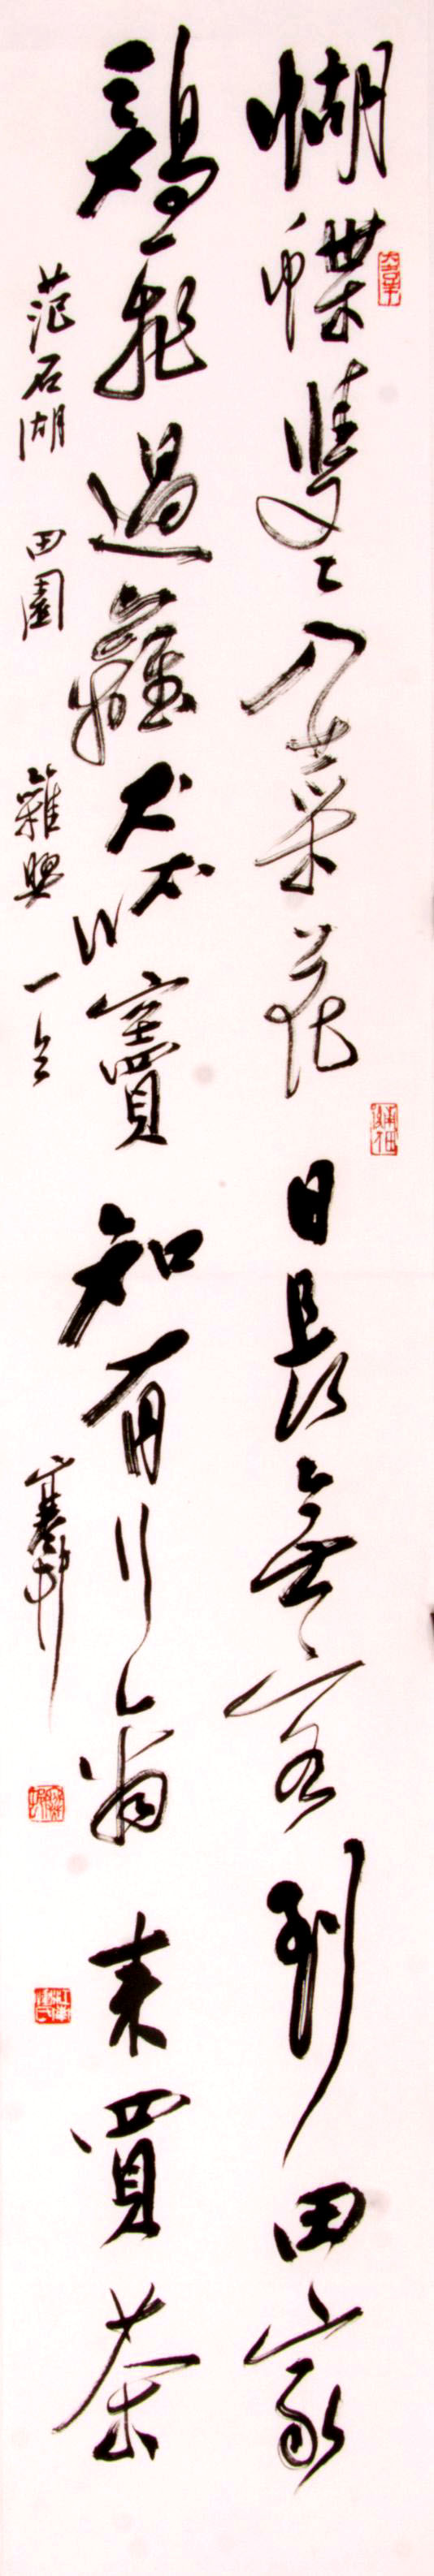 蝴蝶雙〻入菜花日長無客到田家
鷄飛過籬犬吠竇知有行商來買茶
范石湖田園雜興一